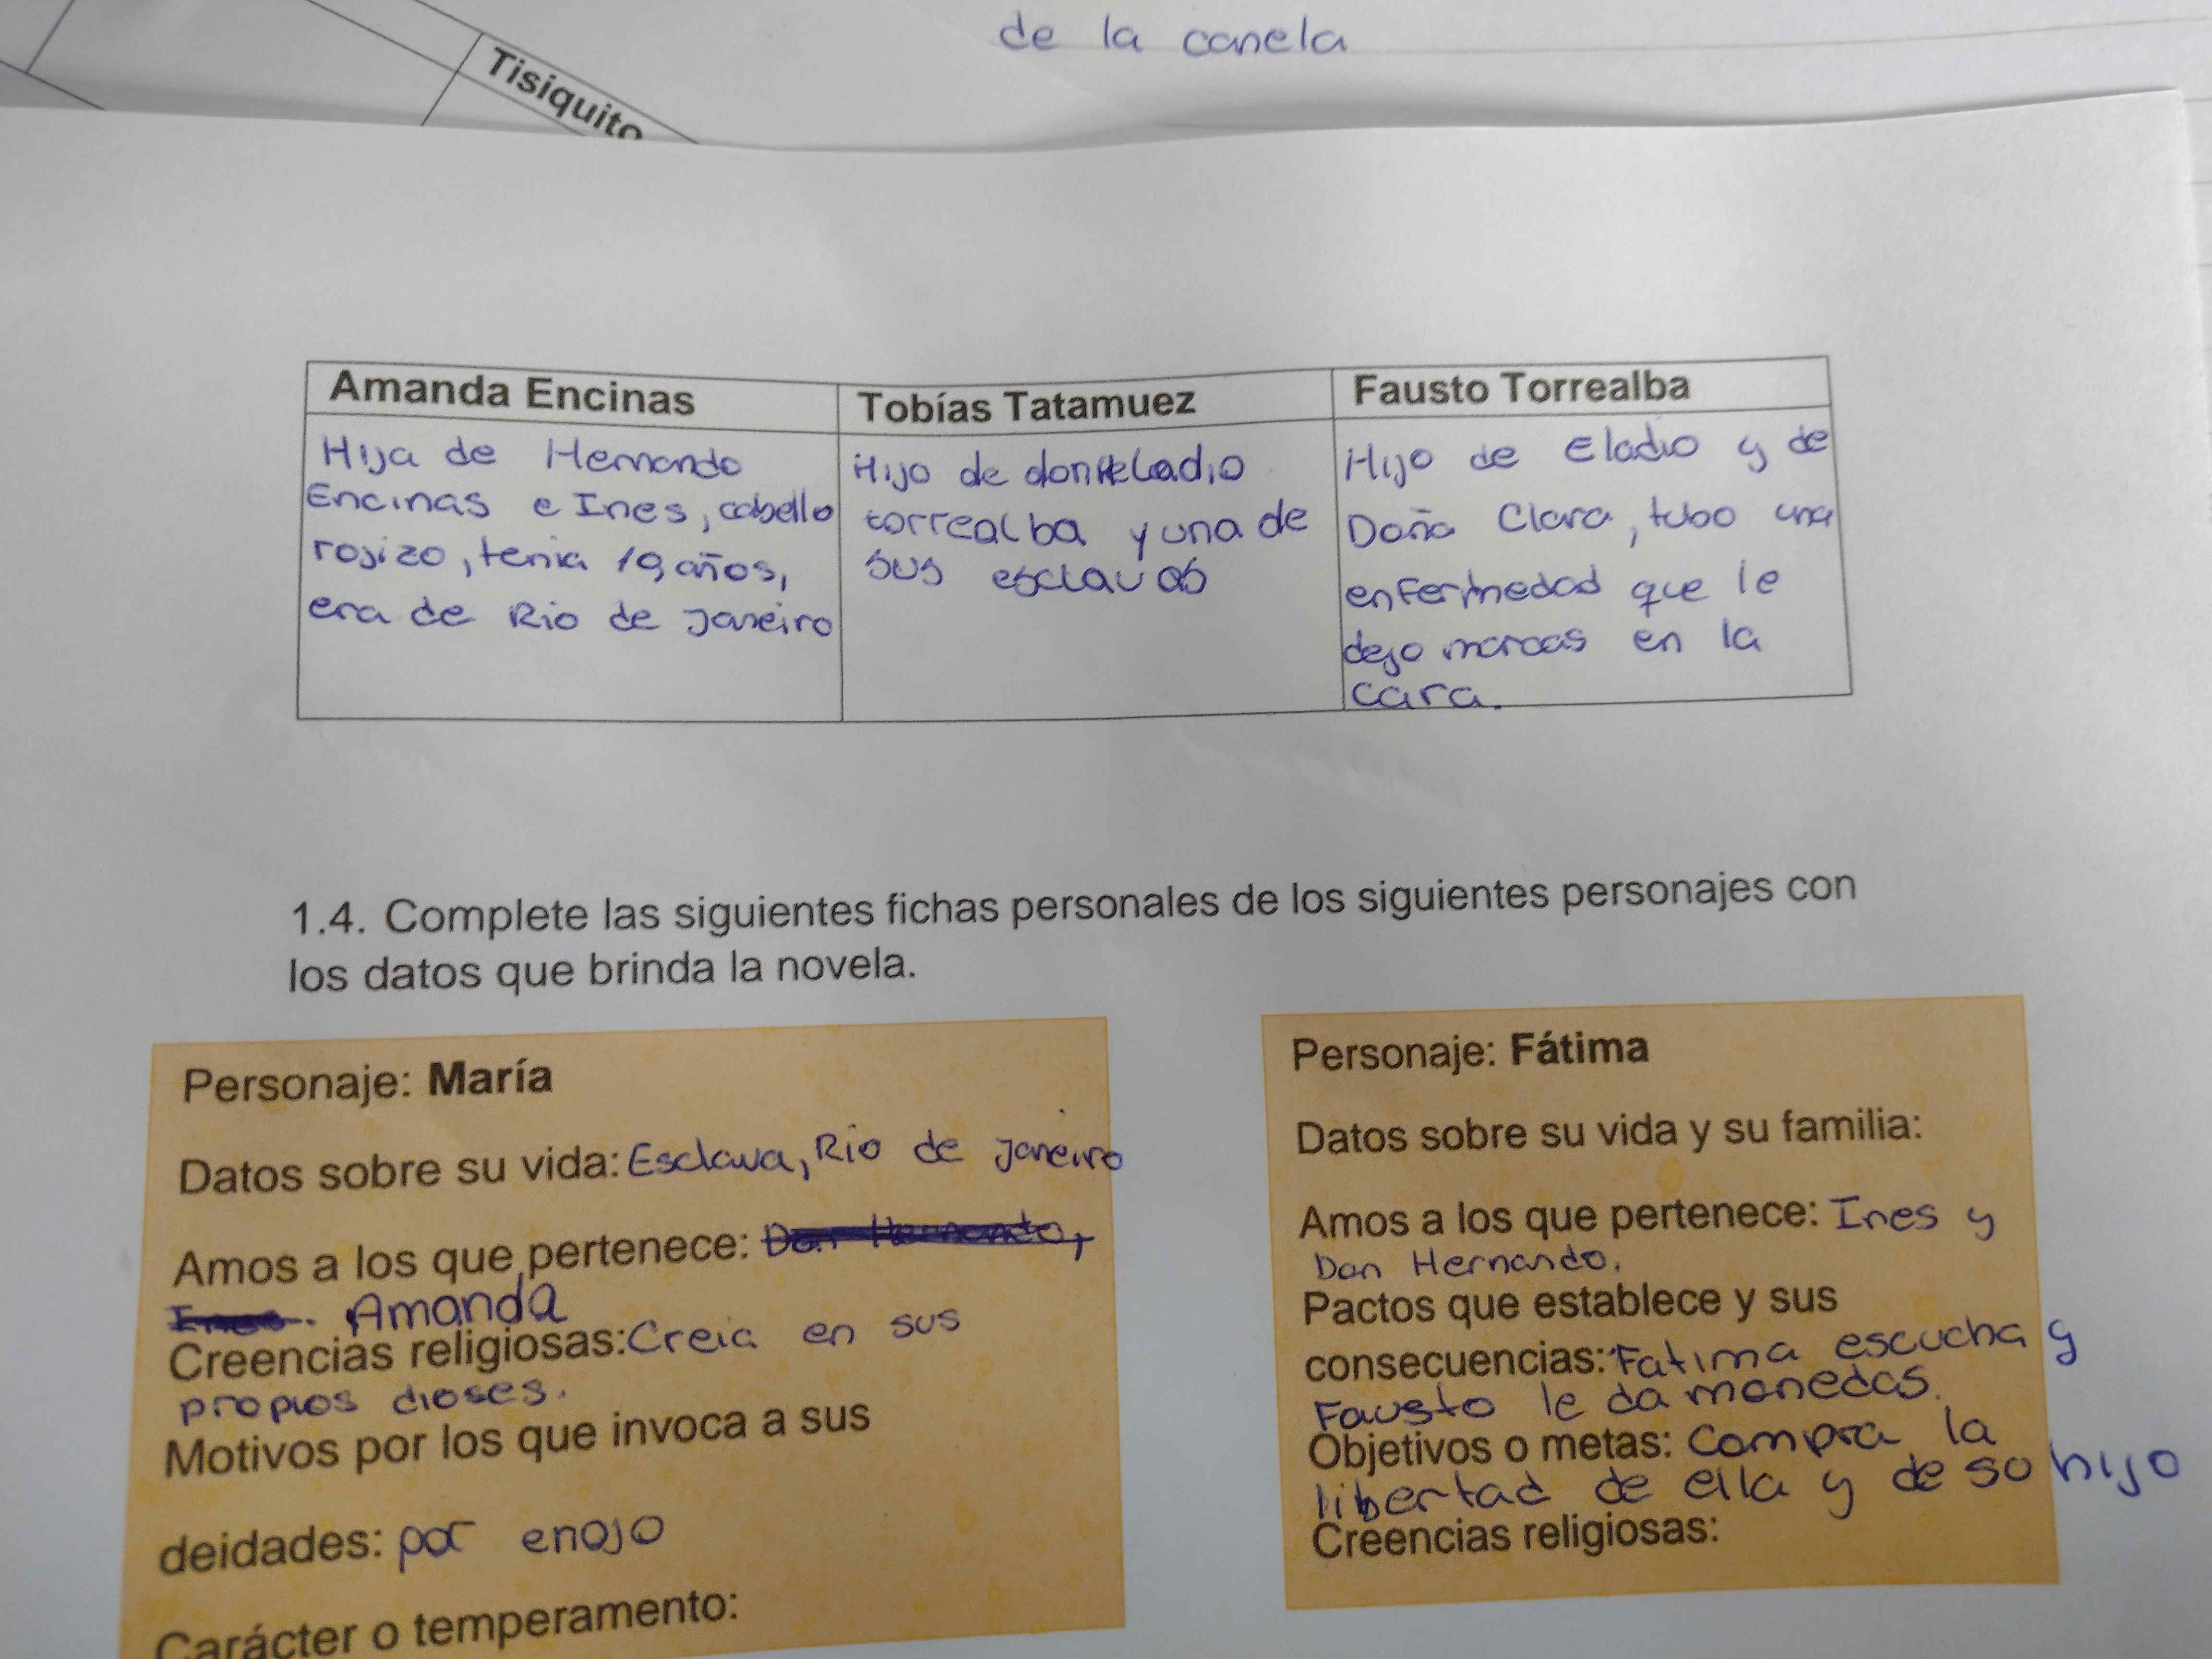 de la canela
Tisiquito
Amanda Encinas
Hija de Hernando
Encinas e Ines, cabello
rojizo, tenia 19 años,
era de Rio de Janeiro
Tobías Tatamuez
Hijo de don Heladio
torrealba y una de
sus esclavas
Fausto Torrealba
Hijo de Eladio y de
Doña Clara, tubo una
enfermedad que le
dejo marcas en la
cara.
1.4. Complete las siguientes fichas personales de los siguientes personajes con
los datos que brinda la novela.
Personaje: María
Datos sobre su vida: Esclava, Rio de Janeiro
Amos a los que pertenece: Don Hernando,
Ines. Amanda
Creencias religiosas: Creia en sus
propios dioses.
Motivos por los que invoca a sus
deidades: por enojo
Carácter o temperamento:
Personaje: Fátima
Datos sobre su vida y su familia:
Amos a los que pertenece: Ines y
Don Hernando.
Pactos que establece y sus
consecuencias: Fatima escucha y
Fausto le da monedas.
Objetivos o metas: Compra la
libertad de ella y de so hijo
Creencias religiosas: